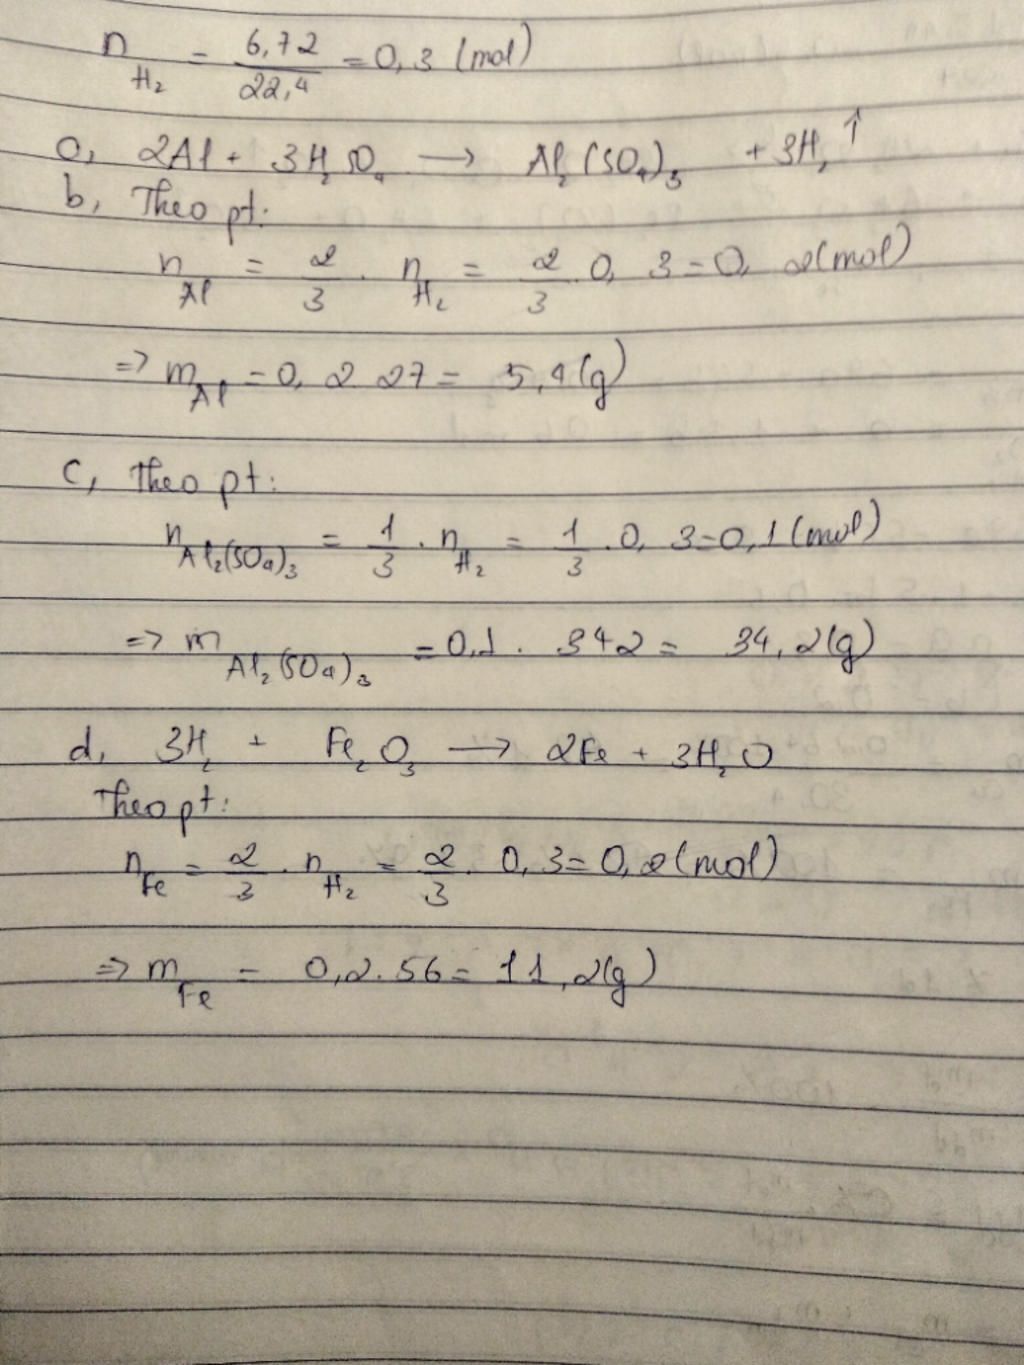 n H₂ = 6,72 / 22,4 = 0,3 (mol)
a, 2Al + 3H₂SO₄ → Al₂(SO₄)₃ + 3H₂↑
b, Theo pt:
n Al = 2/3 . n H₂ = 2/3 . 0,3 = 0,2 (mol)
=> m Al = 0,2 27 = 5,4 (g)
c, Theo pt:
n Al₂(SO₄)₃ = 1/3 . n H₂ = 1/3 . 0,3 = 0,1 (mol)
=> m Al₂(SO₄)₃ = 0,1 . 342 = 34,2 (g)
d, 3H₂ + Fe₂O₃ → 2Fe + 3H₂O
Theo pt:
n Fe = 2/3 . n H₂ = 2/3 . 0,3 = 0,2 (mol)
=> m Fe = 0,2 . 56 = 11,2 (g)